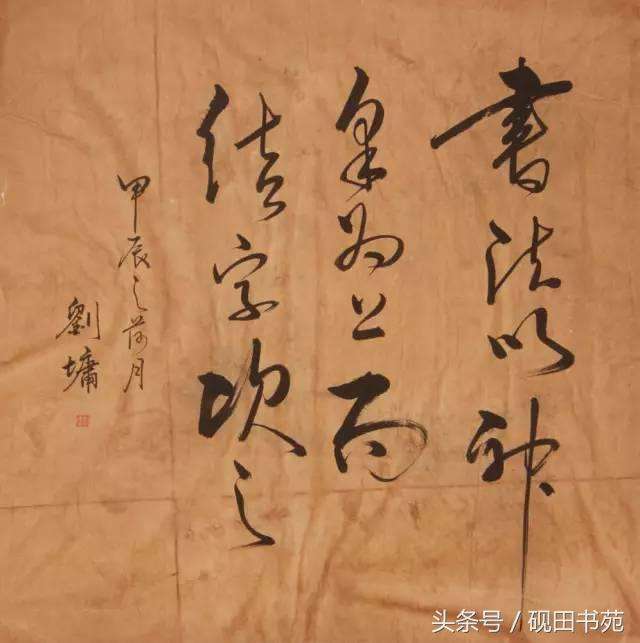 書法以神
氣為上而
結字次之
甲辰之荷月
劉墉
头条号 / 砚田书苑